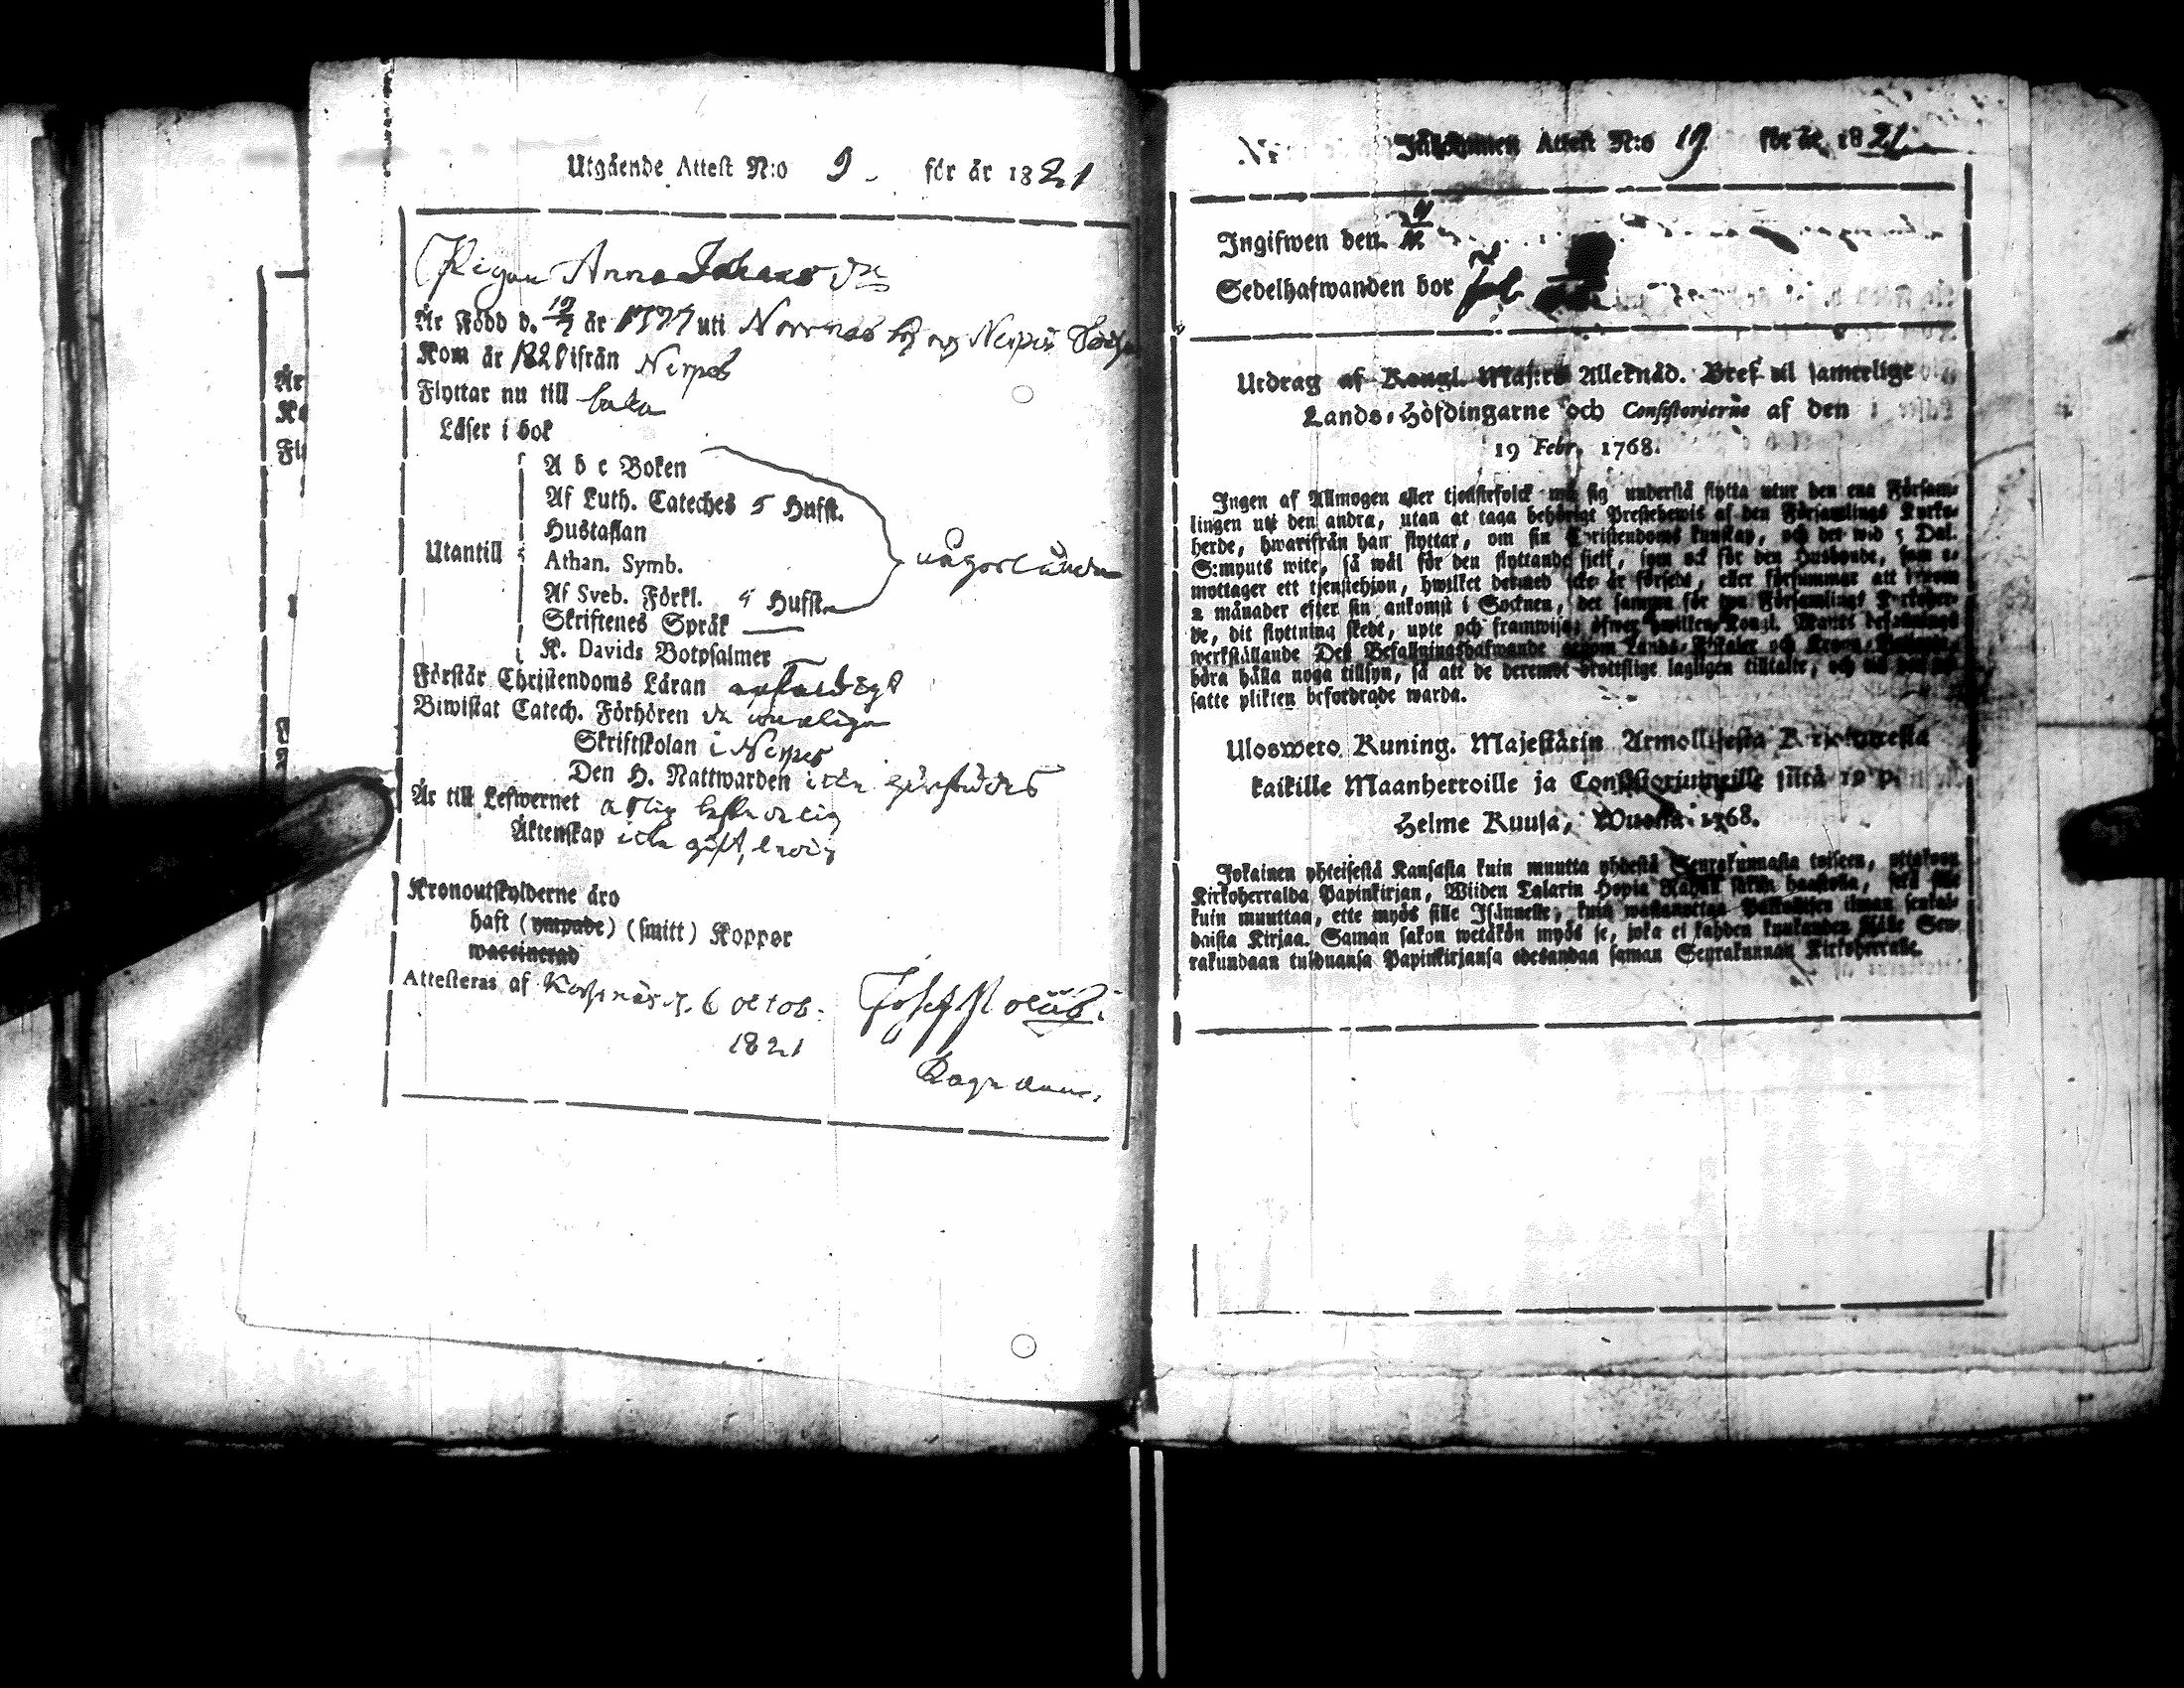 Utgående Attest N:o 9. för år 1821
Pigan Anna Johansdr
Är Född d. 19/7 år 1777 uti Norrnäs by og Nerpes
Kom år 1820 ifrån Nerpes
Flyttar nu till baka
Läser i bok
A b c Boken
Af Luth. Cateches 5 Hufst.
Hustaflan
Utantill
Athan. Symb. någorlunda
Af Sveb. Förkl. 5 Hufst.
Skriftenes Språk
K. Davids Botpsalmer
Förstår Christendoms Läran enfaldigt
Biwistat Catech. Förhören
Skriftskolan i Nerpes
Den H. Nattwarden icke
Är till Lefwernet
Äktenskap icke gift, ledig
Kronoutskylderne äro
haft (ympade) (smitt) Koppor
waccinerad
Attesteras af d. 6 octob.
1821
Inkommen Attest N:o 19 för år 1821
Ingifwen den
Sedelhafwanden bor
Utdrag af Kongl. Maj:ts Allernåd. Bref til samtelige
Lands-Höfdingarne och Consistorierne af den
19 Febr. 1768.
Ingen af Allmogen eller tjenstefolck må sig understå flytta utur den ena Församlingen
uti den andra, utan at taga behörigt Prestebewis af den Församlings Kyrko-
herde, hwarifrån han flyttar, om sin Christendoms kunskap, och det wid 5 Dal.
S:mynts wite, så wäl för den flyttande sjelf, som ock för den Husbonde, som e-
mottager ett tjenstehjon, hwilket dermed icke är försedt, eller försummar att innom
2 månader efter sin ankomst i Socknen, det samma för den Församlings Kyrkoher-
de, dit flyttning skedt, upte och framwisa; öfwer hwilken Kongl. Maj:ts befallnings
werkställande Des Befallningshafwande genom Lands-Fiskaler och Krono-
böra hålla noga tillsyn, så att de deremot brottslige lagligen tilltalte, och
satte plikten befordrade warda.
Ulosweto Kuning. Majestätin Armollisesta Kirjoituresta
kaikille Maanherroille ja Consistoriumeille siitä 19 p.
Helme Kuusa, Wuonna 1768.
Jokainen yhteisestä Kansasta kuin muutta yhdestä Seurakunnasta toiseen, ottakoon
Kirkoherralda Papinkirjan, Wiiden Talarin Hopia Rahan sakon haastolla, sekä sille
kuin muuttaa, ette myös sille Isännelle, kuin wastanottaa Palkollisen ilman senkal-
daista Kirjaa. Saman sakon wetäkön myös se, joka ei kahden kuukauden sisälle Seu-
rakundaan tulduansa Papinkirjansa edesandaa saman Seurakunnan Kirkoherralle.